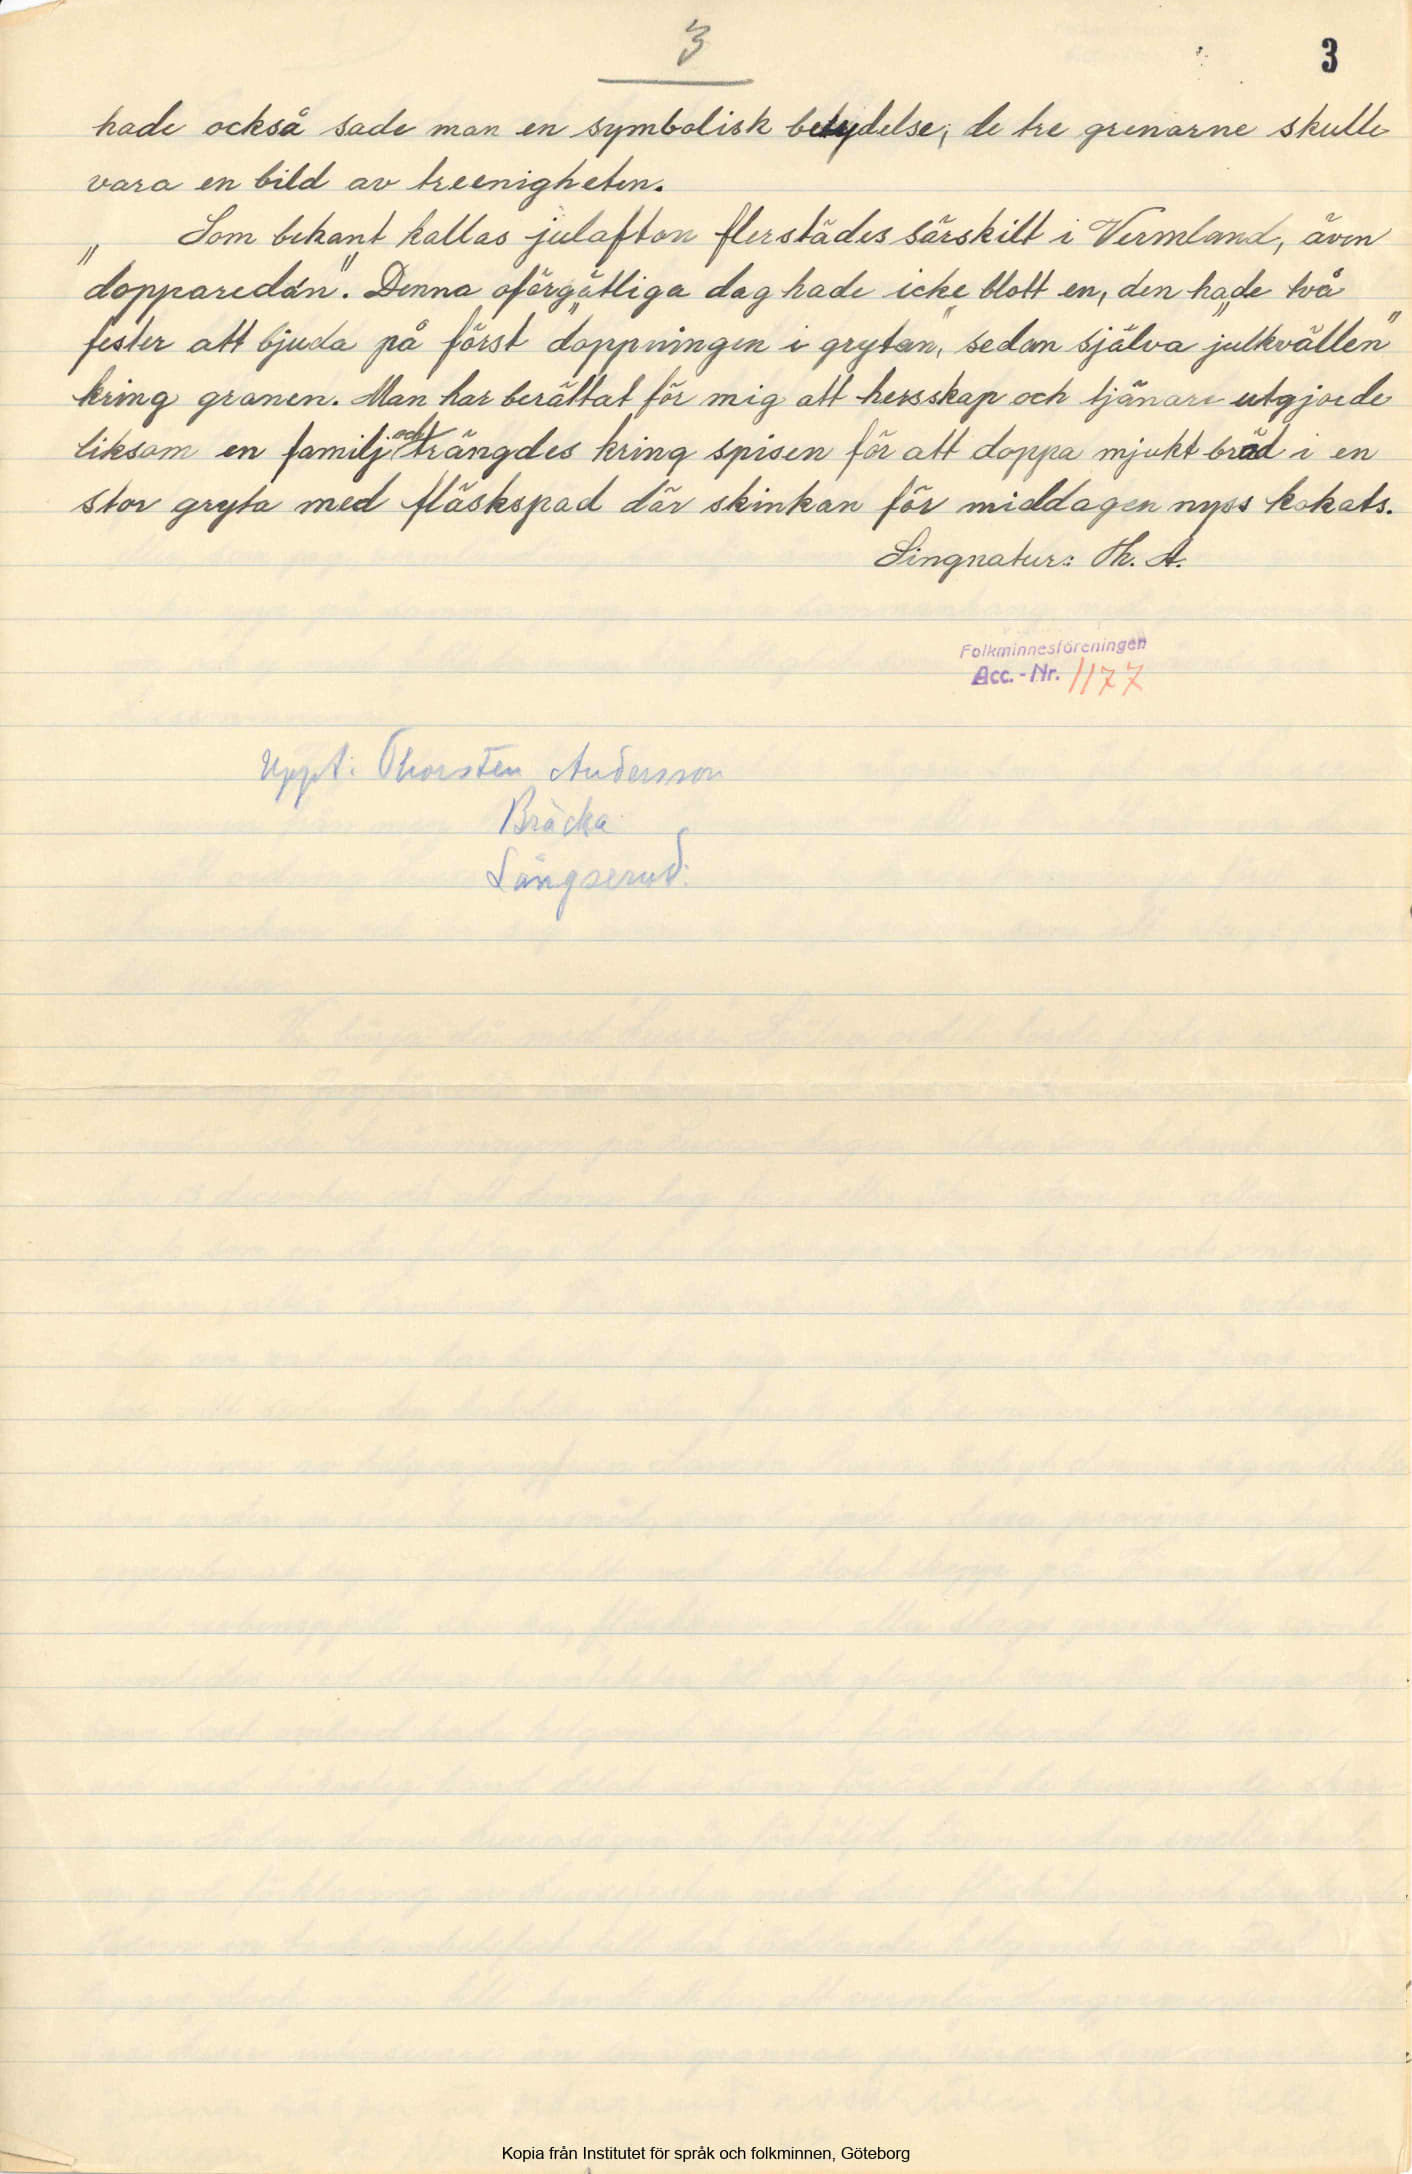 3
3
hade också sade man en symbolisk betydelse; de tre grenarne skulle
vara en bild av treenigheten.
Som bekant kallas julafton flerstädes särskilt i Vermland, även
"dopparedan". Denna oförgätliga dag hade icke blott en, den hade två
fester att bjuda på först "doppningen i grytan", sedan själva "julkvällen"
kring granen. Man har berättat för mig att hersskap och tjänare utgjorde
liksom en familj och trängdes kring spisen för att doppa mjukt bröd i en
stor gryta med fläskspad där skinkan för middagen nyss kokats.
Singnatur: Th. A.
Folkminnesföreningen
Acc.-Nr. 1177
Uppt: Thorsten Andersson
Bräcka
Långserud.
Kopia från Institutet för språk och folkminnen, Göteborg